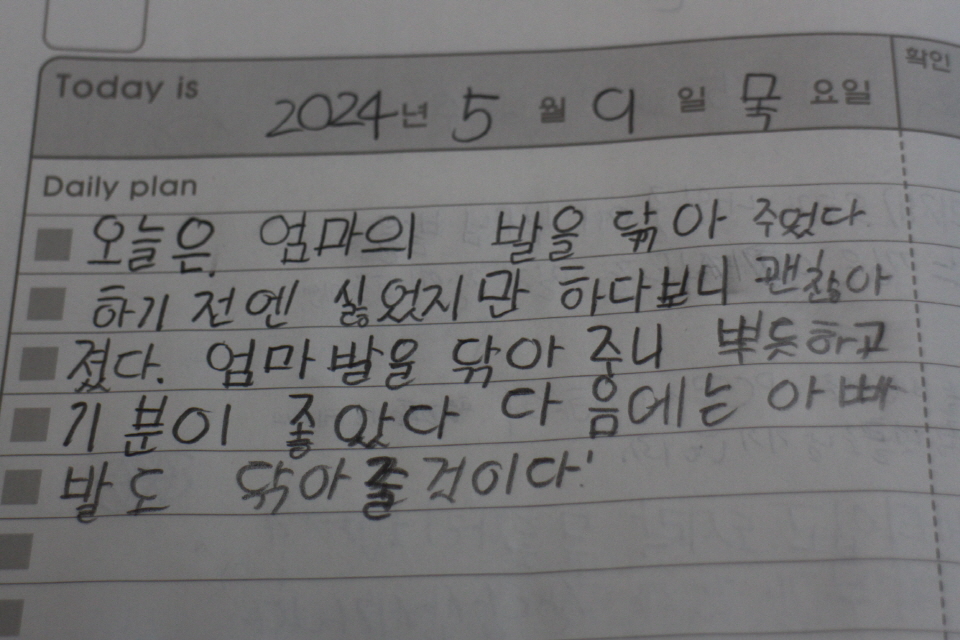 Today is 2024년 5 월 9 일 목 요일 확인
Daily plan
오늘은 엄마의 발을 닦아 주었다.
하기 전엔 싫었지만 하다보니 괜찮아
졌다. 엄마 발을 닦아 주니 뿌듯하고
기분이 좋았다 다음에는 아빠
발도 닦아 줄것이다.